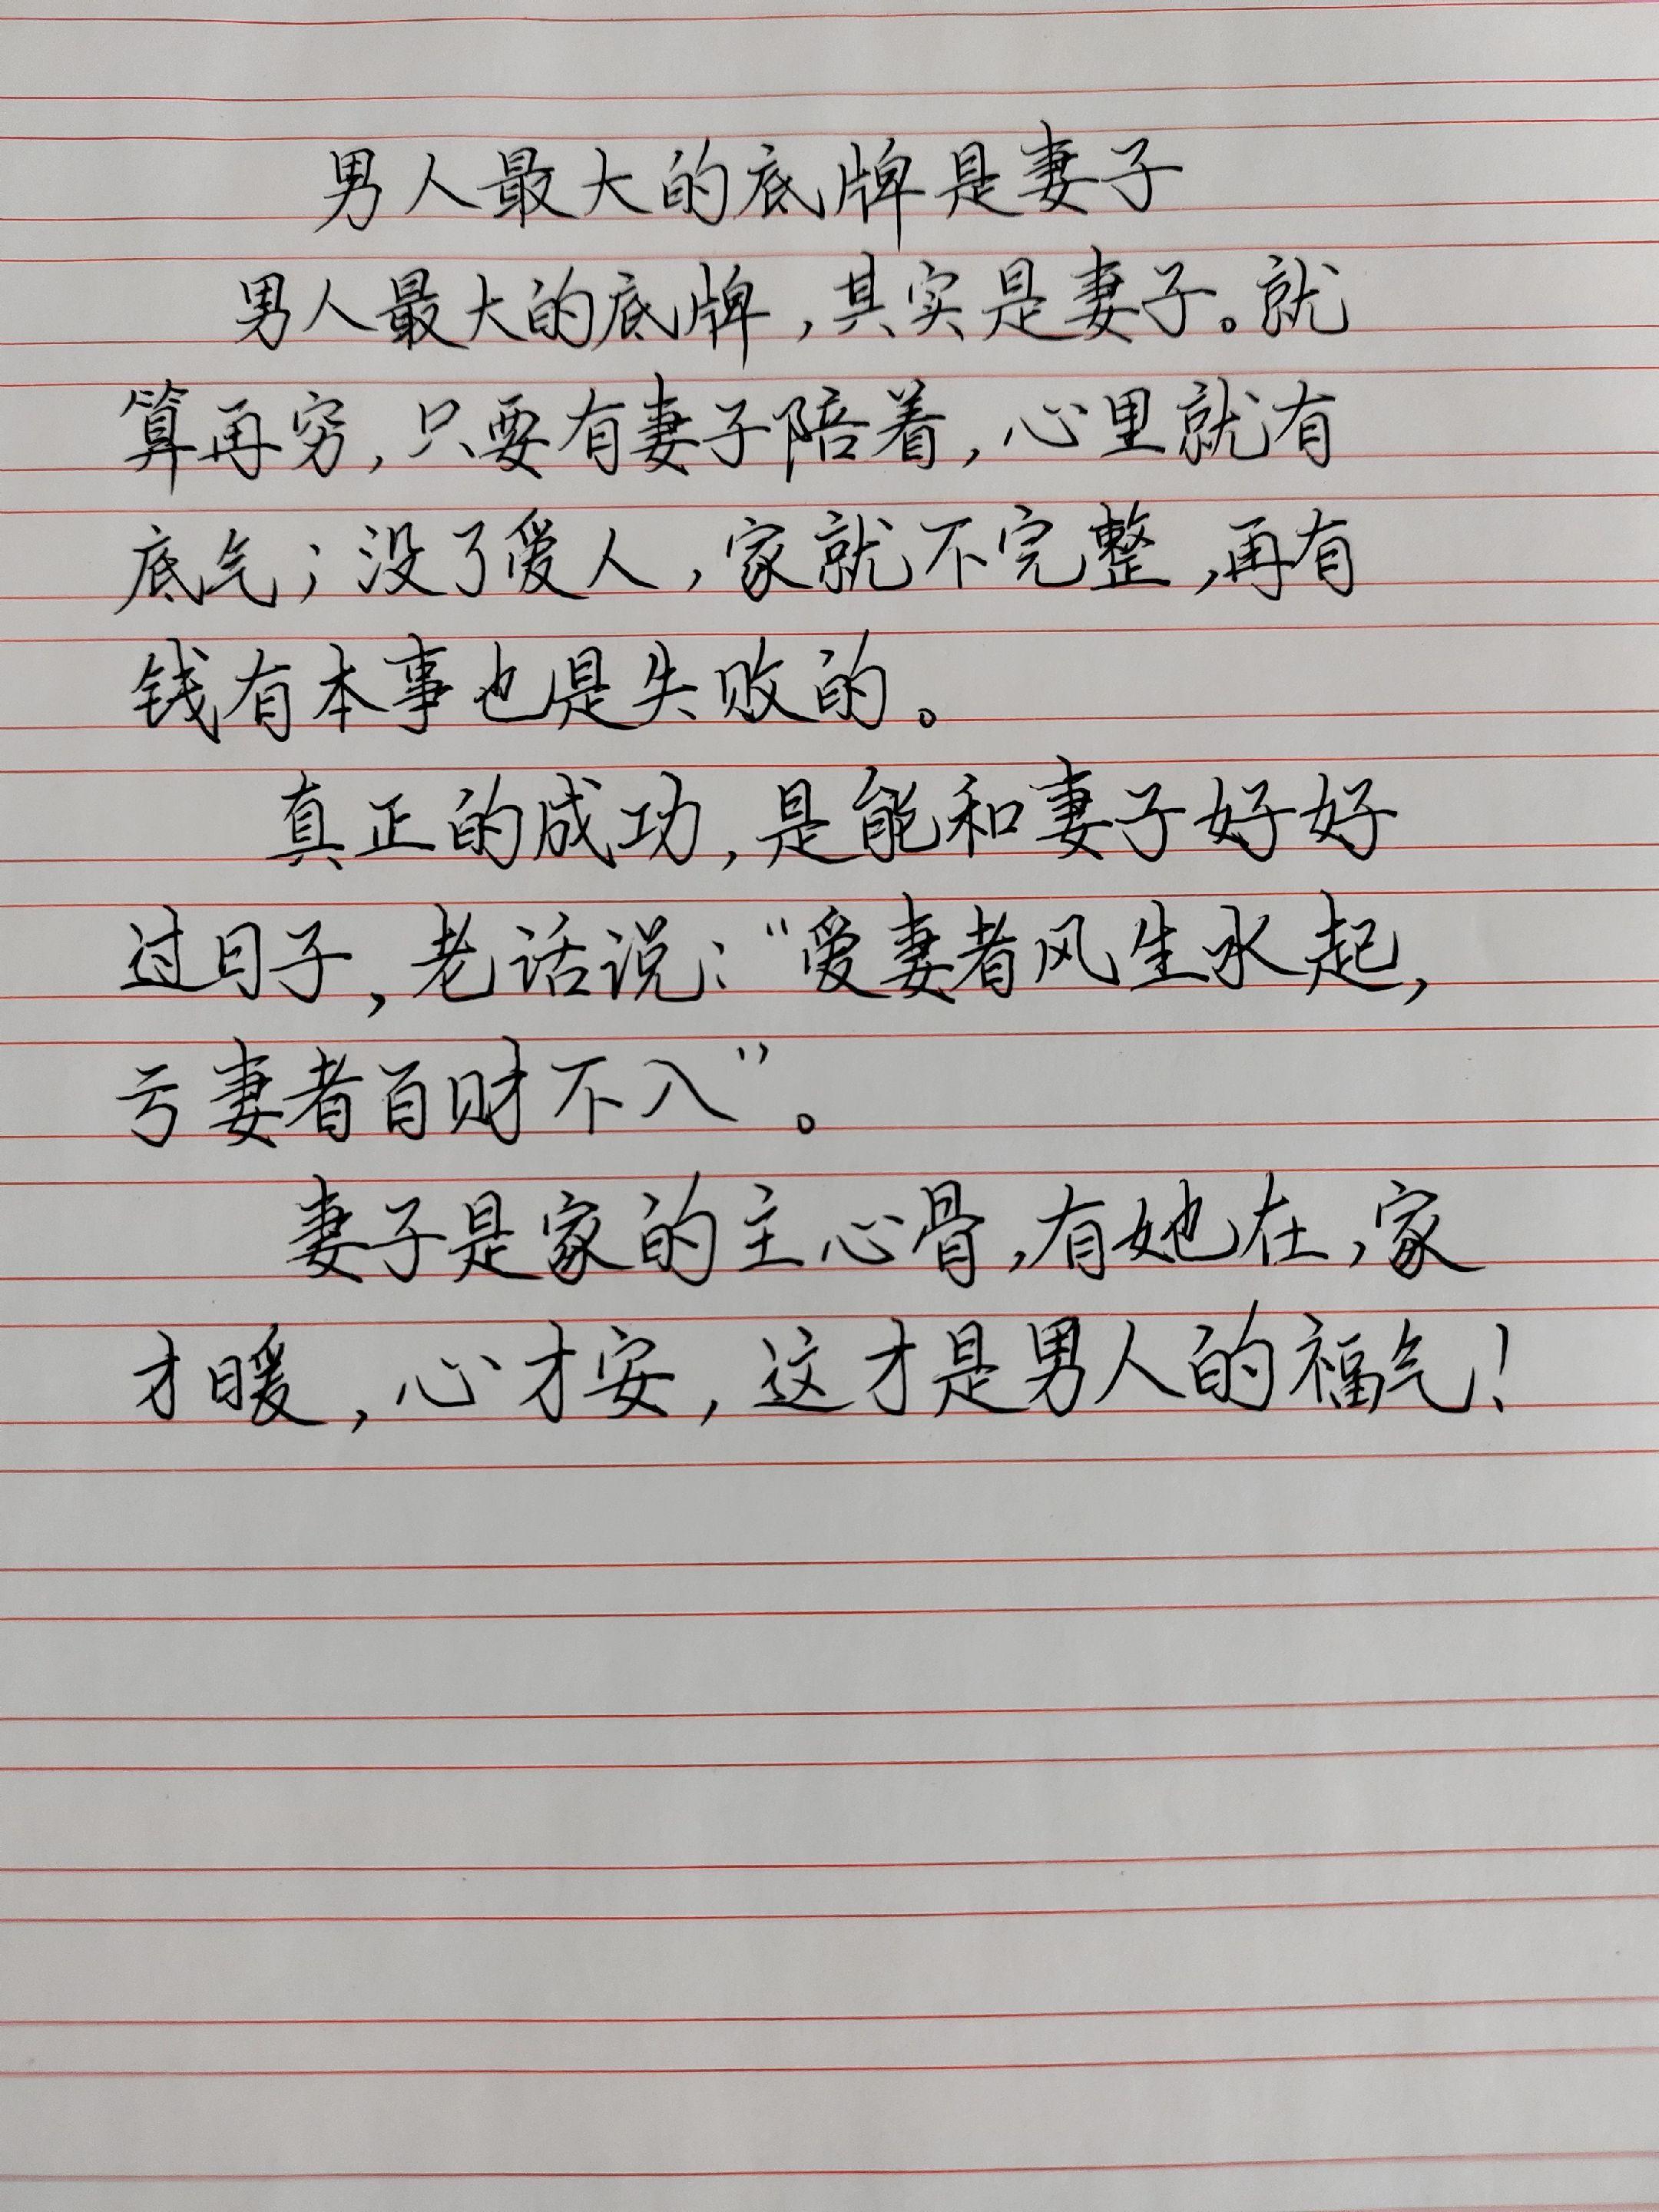 男人最大的底牌是妻子
男人最大的底牌,其实是妻子。就
算再穷,只要有妻子陪着,心里就有
底气;没了爱人,家就不完整,再有
钱有本事也是失败的。
真正的成功,是能和妻子好好
过日子,老话说:“爱妻者风生水起,
亏妻者百财不入”。
妻子是家的主心骨,有她在,家
才暖,心才安,这才是男人的福气!